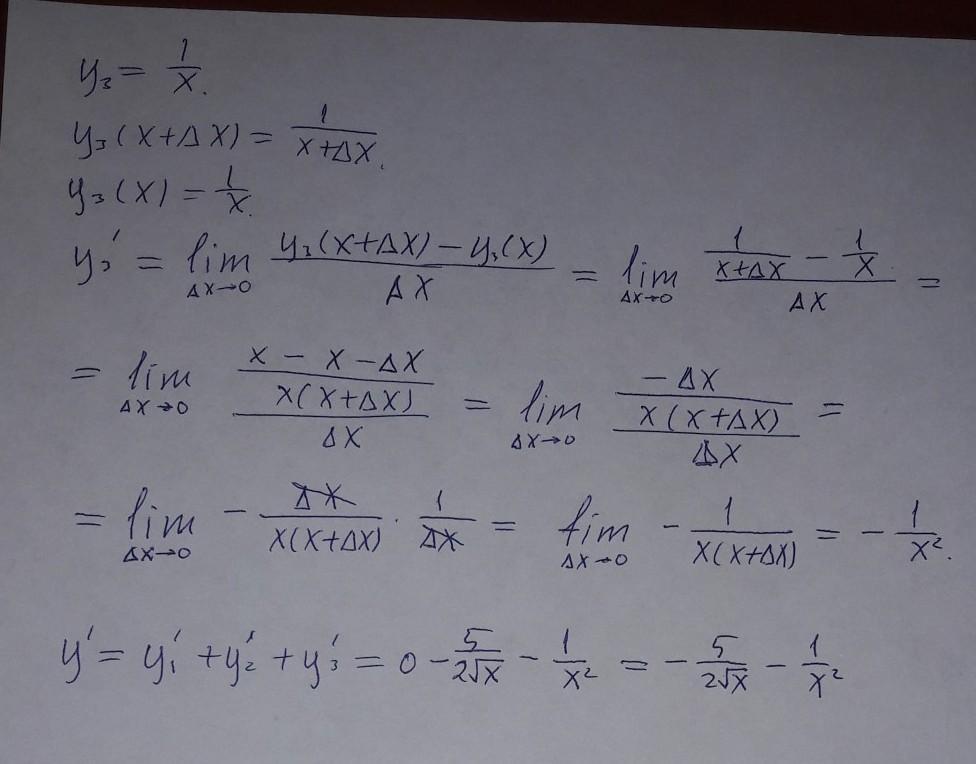 y₃ = 1/x.
y₃(x+Δx) = 1/(x+Δx).
y₃(x) = 1/x.
y₃' = lim_{Δx→0} (y₃(x+Δx) − y₃(x))/Δx = lim_{Δx→0} (1/(x+Δx) − 1/x)/Δx =
= lim_{Δx→0} ((x − x − Δx)/(x(x+Δx)))/Δx = lim_{Δx→0} ((−Δx)/(x(x+Δx)))/Δx =
= lim_{Δx→0} − Δx/(x(x+Δx)) · 1/Δx = lim_{Δx→0} − 1/(x(x+Δx)) = − 1/x².
y' = y₁' + y₂' + y₃' = 0 − 5/(2√x) − 1/x² = − 5/(2√x) − 1/x²